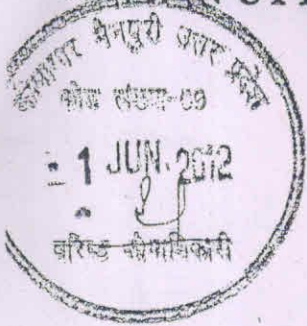 कोषागार मैनपुरी उत्तर प्रदेश
कोड संख्या-09
1 JUN 2012
वरिष्ठ कोषाधिकारी